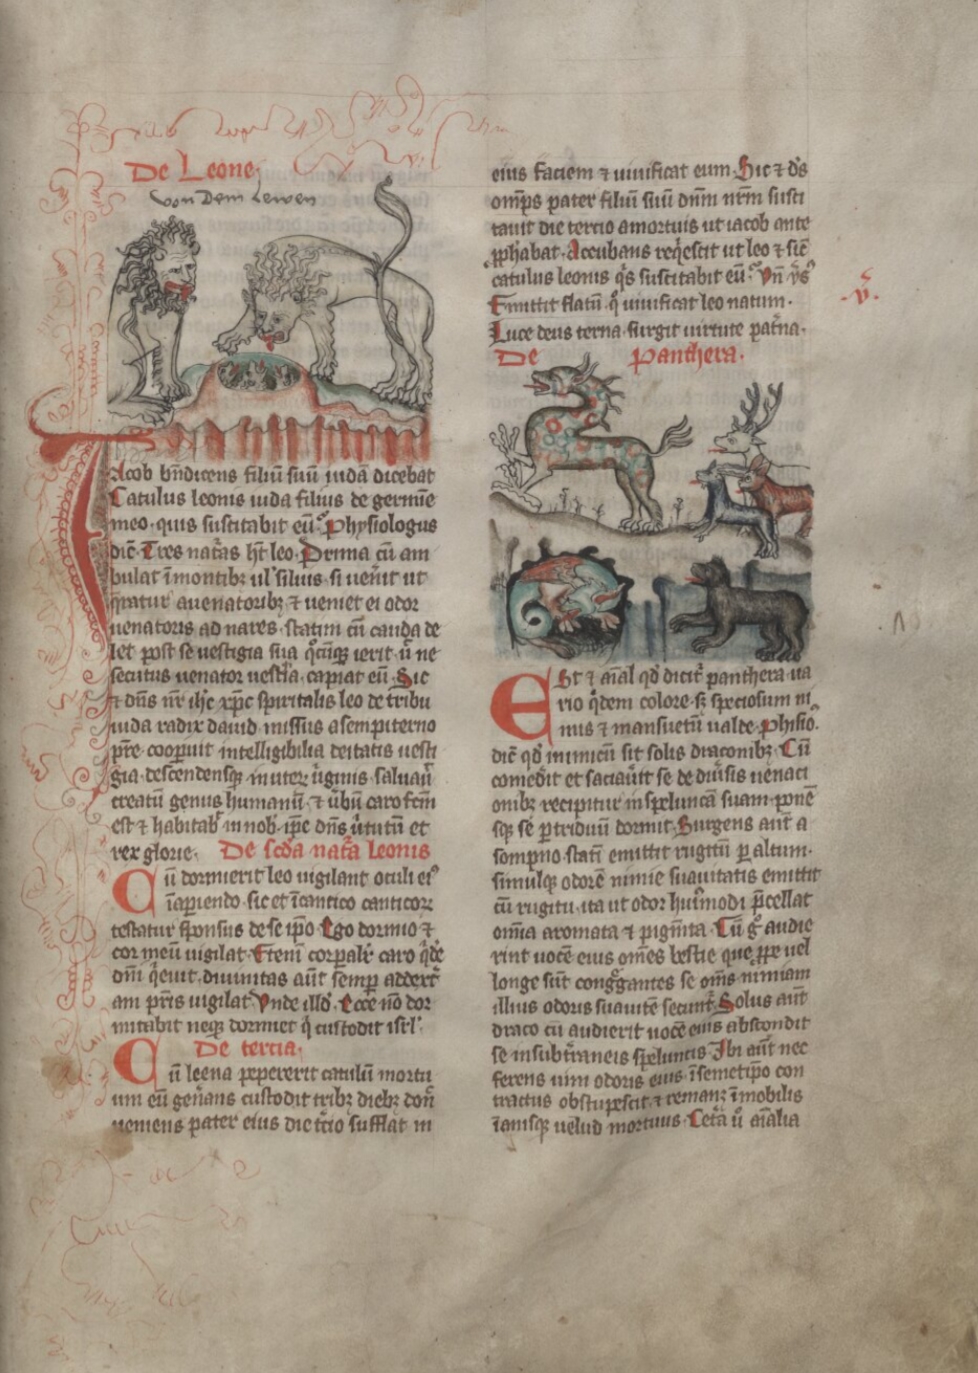 De Leone
von Dem Lewen
Iacob bñdicens filiũ suũ iudã dicebat
Catulus leonis iuda filius de germĩe
meo · quis suscitabit eũ · Physiologus
dic̃ · Tres nat̃as ht̃ leo · Prima cũ am
bulat ĩ montibꝫ ul̕ siluis · si uen̕it ut
q̃ratur a uenatoribꝫ ⁊ ueniet ei odor
uenatoris ad nares · statim cũ cauda de
let post se uestigia sua q̊cũqꝫ ierit · ũ ne
secutus uenator uestĩa · capiat eũ · Sic
⁊ dñs nr̃ ih̕c xp̃c spiritalis leo de tribu
iuda radix dauid · missus a sempiterno
pr̃e · cooperuit intelligibilia deitatis uesti
gia · descendensqꝫ in uterũ ũginis · saluauĩ
creatũ genus humanũ · ⁊ ũbũ caro fcm̃
est ⁊ habitab̕ in nob · ip̃e dñs ũtutũ et
rex glorie · De sc̃da nat̃a leonis
Cũ dormierit leo uigilant oculi ei᷒
ĩapiendo · sic et ĩ cantico canticoꝝ
testatur sponsus de se ip̃o · Ego dormio ⁊
cor meũ uigilat · Etenĩ corpalr̕ caro q̃dẽ
dñi q̕euit · diuinitas aũt semp̱ ad dext̃
am pr̃is uigilat · Vnde illd̕ · Ecce nõ dor
mitabit neqꝫ dormiet q̕ custodit isrl̕ ·
De tercia ·
Cũ leena pepererit catulũ mortu
um eũ gen̕ans custodit tribꝫ diebꝫ don̕
ueniens pater eius die t̕cio sufflat in
eius faciem ⁊ uiuificat eum · Sic ⁊ d̕s
om̃ps pater filiũ suũ dñm nr̃m susci
tauit die tercio a mortuis ut iacob ante
ꝓph̕abat · Accubans reqꝭescit ut leo ⁊ sic̃
catulus leonis q̕s suscitabit eũ · Vñ ỹs᷒
Emittit flatũ q̊ uiuificat leo natum ·
Luce deus terna · surgit uirtute pat̕na ·
De Panthera ·
Est ⁊ aĩal qd̕ dicit̕ panthera · ua
rio q̕dem colore · sꝫ speciosum ni
mis ⁊ mansuetũ ualde · Phisio ·
dic̃ qd̕ inimicũ sit solis draconibꝫ · Cũ
comed̕it et saciau̕it se de diũsis uenaci
onibꝫ recipitur in speluncã suam · ponẽ
sqꝫ se ꝑ triduũ dormit · Surgens aũt a
sompno statĩ emittit rugitũ ꝑ altum ·
simulqꝫ odorẽ nimie suauitatis emittit
cũ rugitu · ita ut odor hui᷒modi p̃cellat
om̃ia aromata ⁊ pigm̃ta · Cũ g̊ audie
rint uocẽ eius om̃es bestie que ꝓpe uel
longe sũt cong̃gantes se om̃s nimiam
illius odoris suauitẽ secunt̕ · Solus aũt
draco cũ audierit uocẽ eius abscondit
se in subt̃raneis speluncis · Ibi aũt nec
ferens uim odoris eius ĩ semetip̃o con
tractus obstupescit · ⁊ remanꝫ ĩmobilis
ĩanisqꝫ uelud mortuus · Cet̕a ũ aĩalia